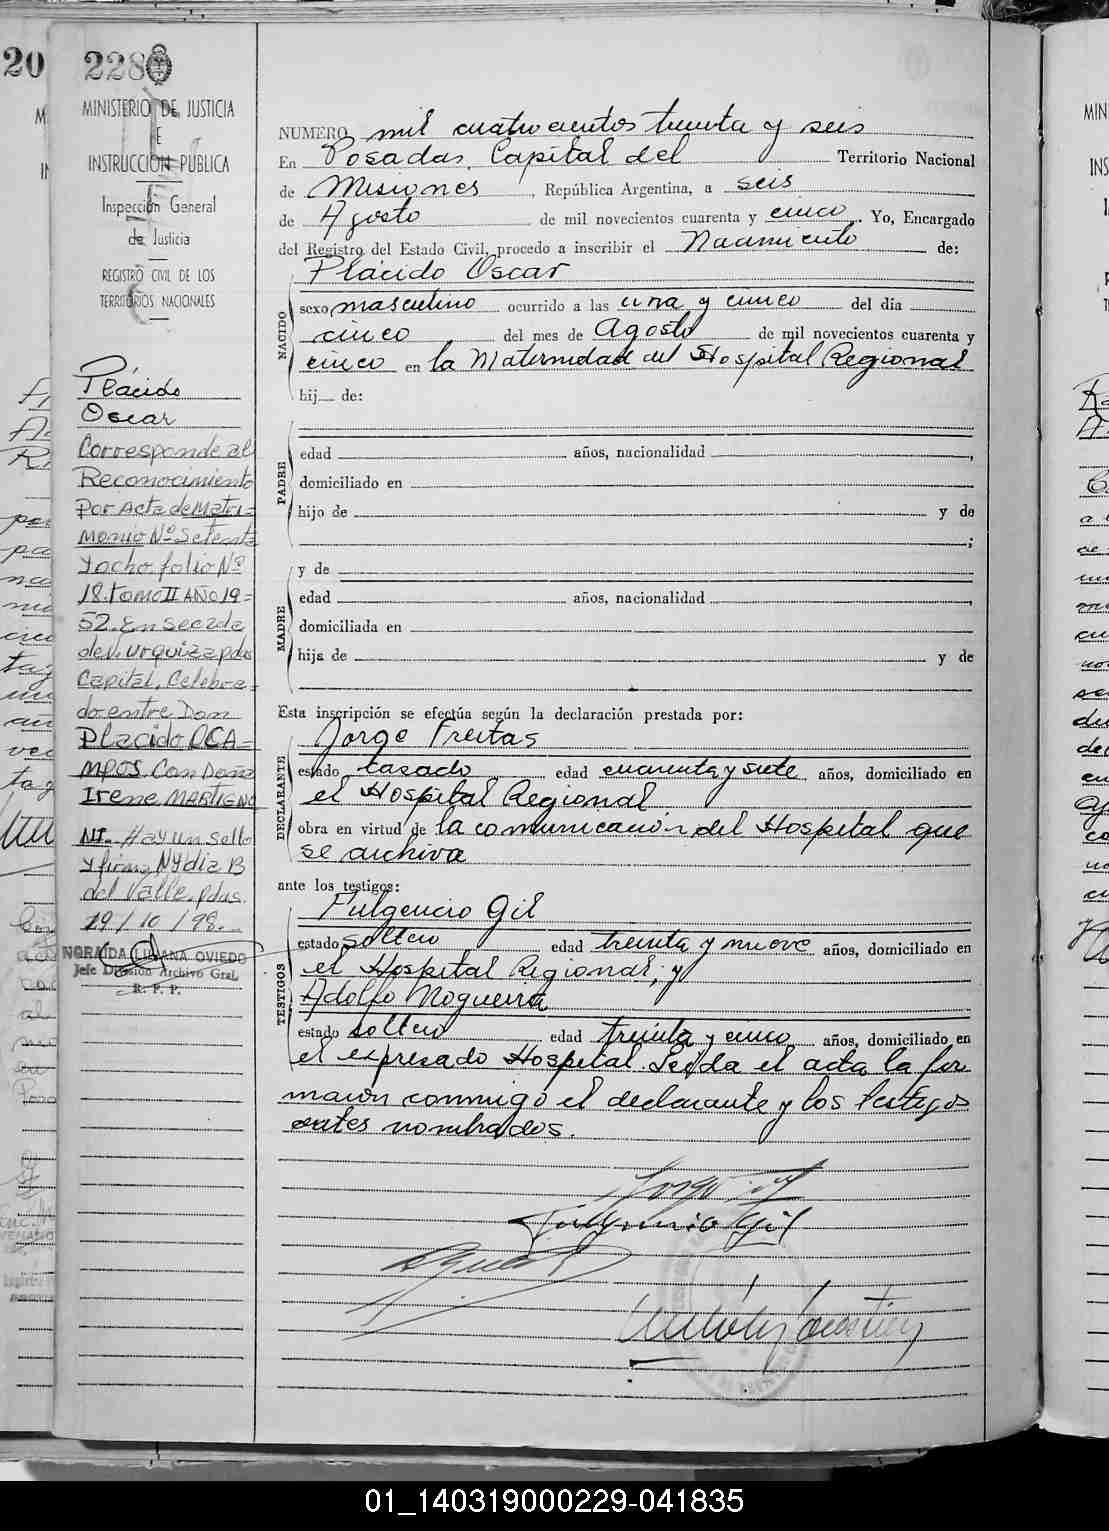 228
MINISTERIO DE JUSTICIA
E
INSTRUCCION PUBLICA
Inspección General
de Justicia
REGISTRO CIVIL DE LOS
TERRITORIOS NACIONALES
Plácido
Oscar
Corresponde al
Reconocimiento
Por Acta de Matri=
monio Nº Setenta
y ocho folio Nº
18. tomo II AÑO 19=
52. En Sec. de
de J. Urquiza pdas
Capital. Celebra=
do entre Don
Placido OCA=
MPOS. Con Doña
Irene MARTIGNO
NI.- Hay un Sello
y firma Nydia B
del Valle. Pdas.
29/10/98.-
NORAIDA LILIANA OVIEDO
Jefe División Archivo Gral.
R. P. P.
NUMERO mil cuatrocientos treinta y seis
En Posadas, Capital del Territorio Nacional
de Misiones, República Argentina, a seis
de Agosto de mil novecientos cuarenta y cinco. Yo, Encargado
del Registro del Estado Civil, procedo a inscribir el Nacimiento de:
NACIDO
Plácido Oscar
sexo masculino ocurrido a las una y cinco del día
cinco del mes de Agosto de mil novecientos cuarenta y
cinco en la Maternidad del Hospital Regional
hij de:
PADRE
edad años, nacionalidad ,
domiciliado en
hijo de y de
;
MADRE
y de
edad años, nacionalidad ,
domiciliada en
hija de y de
Esta inscripción se efectúa según la declaración prestada por:
DECLARANTE
Jorge Freitas
estado casado edad cuarenta y siete años, domiciliado en
el Hospital Regional
obra en virtud de la comunicación del Hospital que
se archiva
ante los testigos:
TESTIGOS
Fulgencio Gil
estado soltero edad treinta y nueve años, domiciliado en
el Hospital Regional; y
Adolfo Nogueira
estado soltero edad treinta y cinco años, domiciliado en
el expresado Hospital. Leída el acta la fir
maron conmigo el declarante y los testigos
antes nombrados.
Fulgencio Gil
01_140319000229-041835